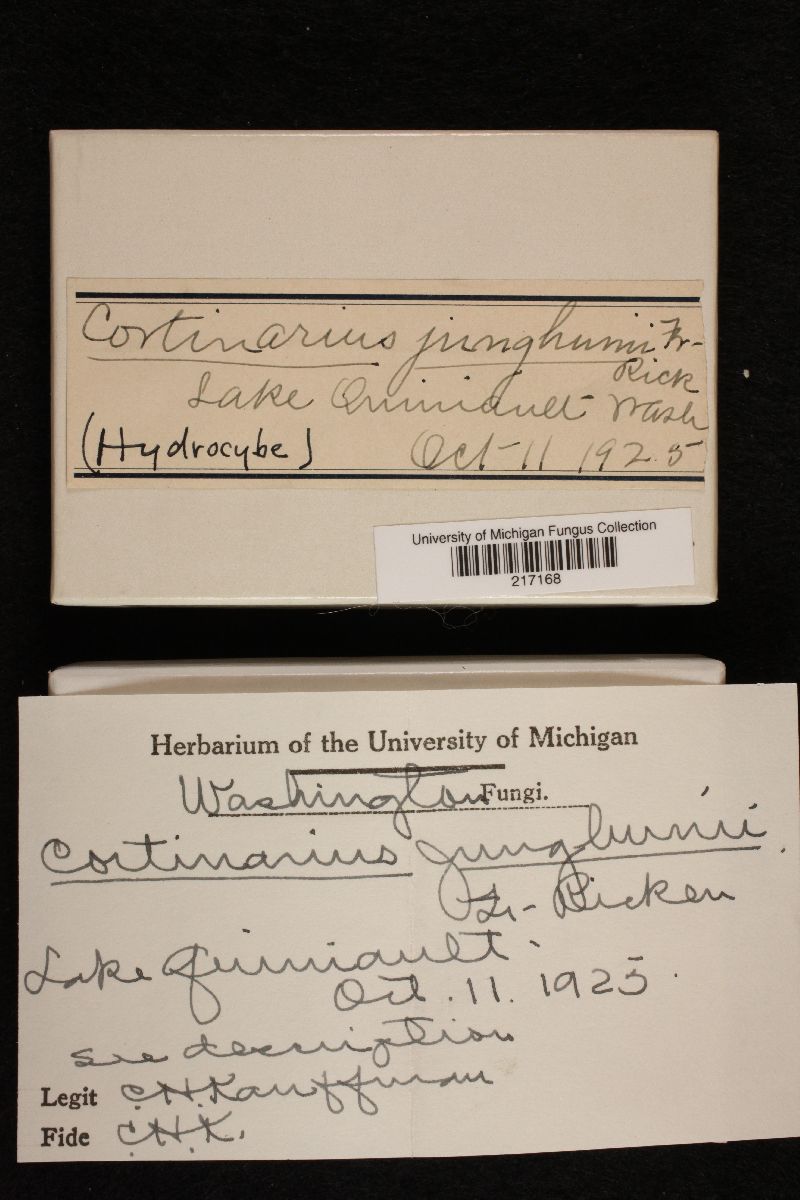 Cortinarius junghunii Fr-
Rick
Lake Quiniault Wash
(Hydrocybe) Oct 11 1925
University of Michigan Fungus Collection
217168
Herbarium of the University of Michigan
Washington Fungi.
Cortinarius junghunii.
Fr- Ricken
Lake Quiniault.
Oct. 11. 1925.
see description
Legit C.H. Kauffman
Fide C.H.K.